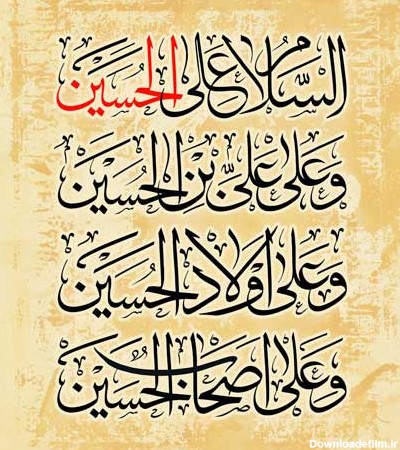 السَّلامُ عَلَى الحُسَيْن
وَعَلى عَليِّ بْنِ الحُسَيْن
وَعَلى أَوْلادِ الحُسَيْن
وَعَلى أَصْحابِ الحُسَيْن
Downloadefilm.ir